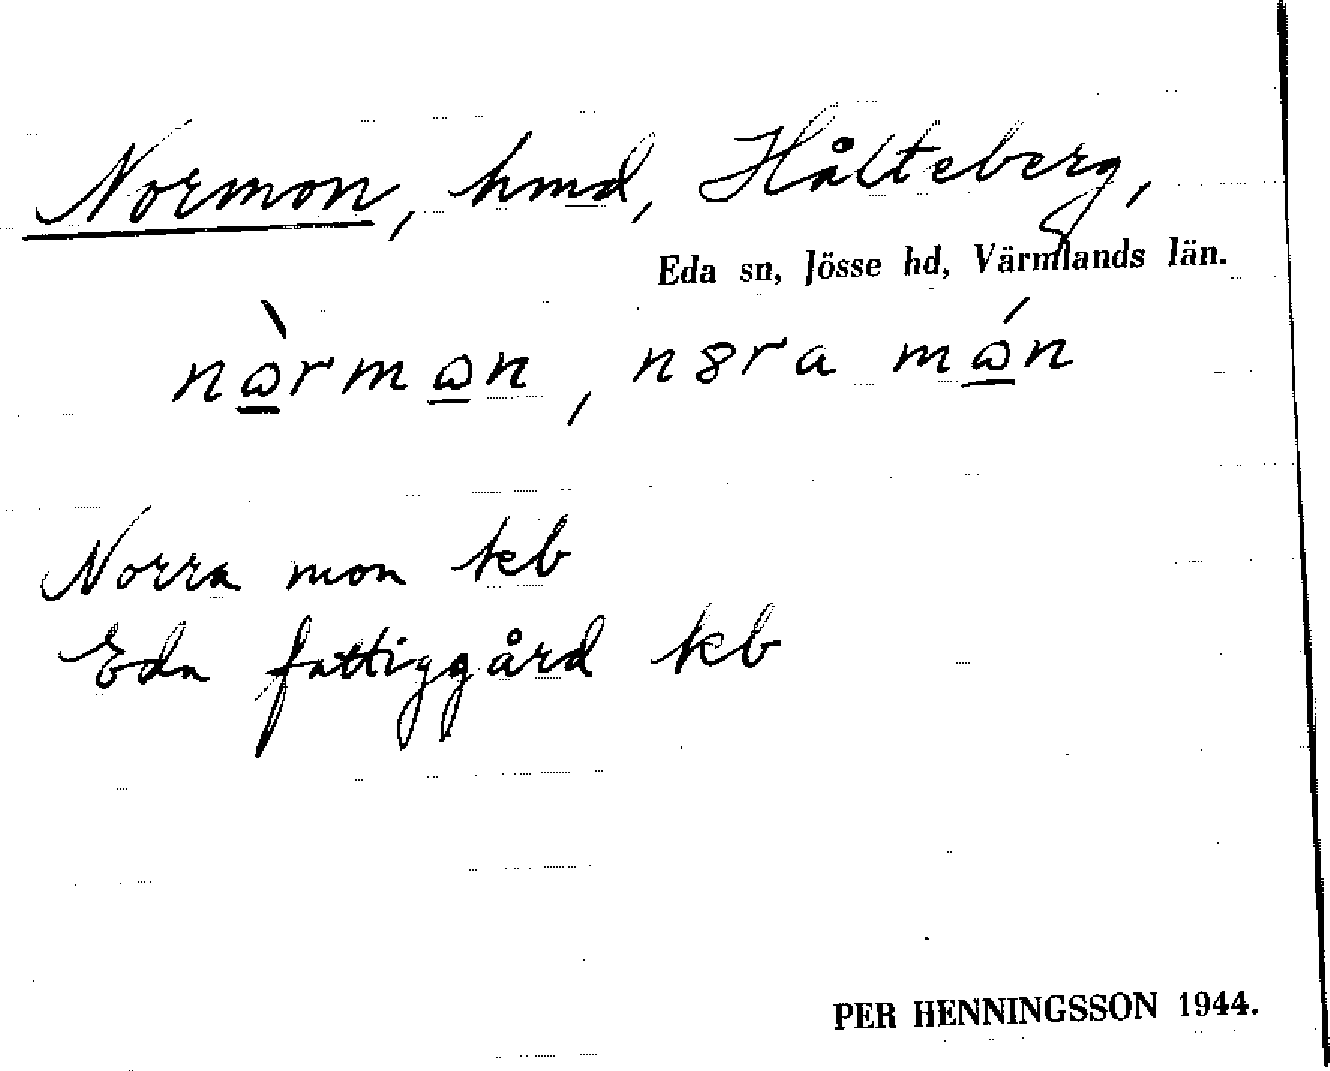 Normon, hmd, Hålteberg,
Eda sn, Jösse hd, Värmlands län.
nɷ̲̀rmɷ̲n, n8ra mɷ̲́n
Norra mon kb
Eda fattiggård kb
PER HENNINGSSON 1944.